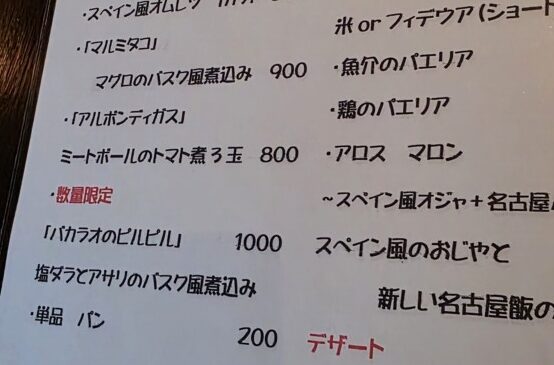 ・スペイン風オムレツ
・「マルミタコ」
マグロのバスク風煮込み 900
・「アルボンディガス」
ミートボールのトマト煮３玉 800
・数量限定
「バカラオのピルピル」 1000
塩ダラとアサリのバスク風煮込み
・単品 パン
200
米 or フィデウア(ショート
・魚介のパエリア
・鶏のパエリア
・アロス マロン
～スペイン風オジャ+名古屋
スペイン風のおじやと
新しい名古屋飯の
デザート